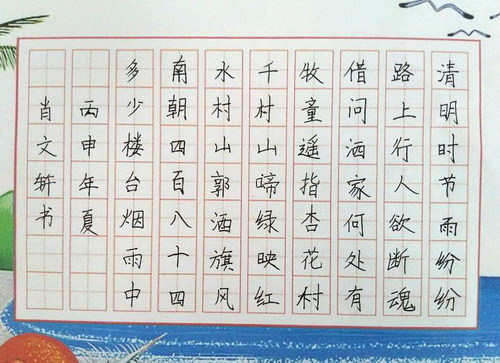 清明时节雨纷纷
路上行人欲断魂
借问酒家何处有
牧童遥指杏花村
千村山啼绿映红
水村山郭酒旗风
南朝四百八十四
多少楼台烟雨中
丙申年夏
肖文轩书